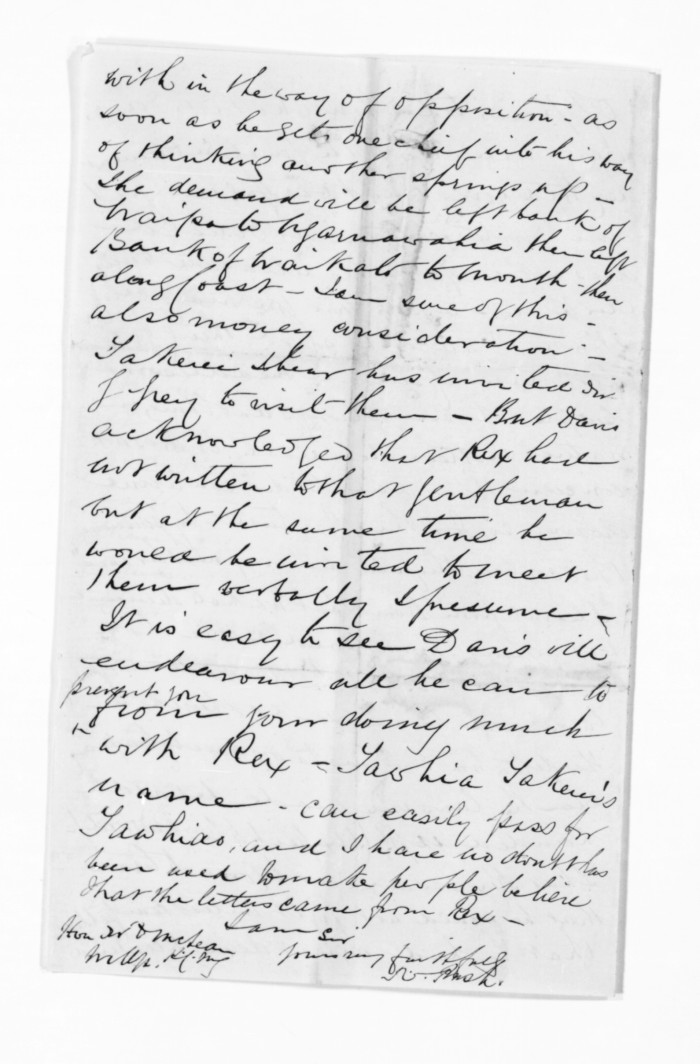 with in the way of opposition - as
soon as he gets one chief into his way
of thinking another springs up -
The demand will be left bank of
Waipa to Ngaruawahia then left
Bank of Waikato to mouth - then
along Coast - I am sure of this -
also money consideration -
Takerei I hear has invited Sir
G Grey to visit them - But Davis
acknowledged that Rex had
not written to that gentleman
but at the same time he
would be invited to meet
them verbally I presume -
It is easy to see Davis will
endeavour all he can to
prevent you
from your doing much
with Rex - Tawhia Takerei's
name - can easily pass for
Tawhiao, and I have no doubt has
been used to make people believe
that the letters came from Rex -
I am Sir
yours very faithfully
Hon Sir D McLean